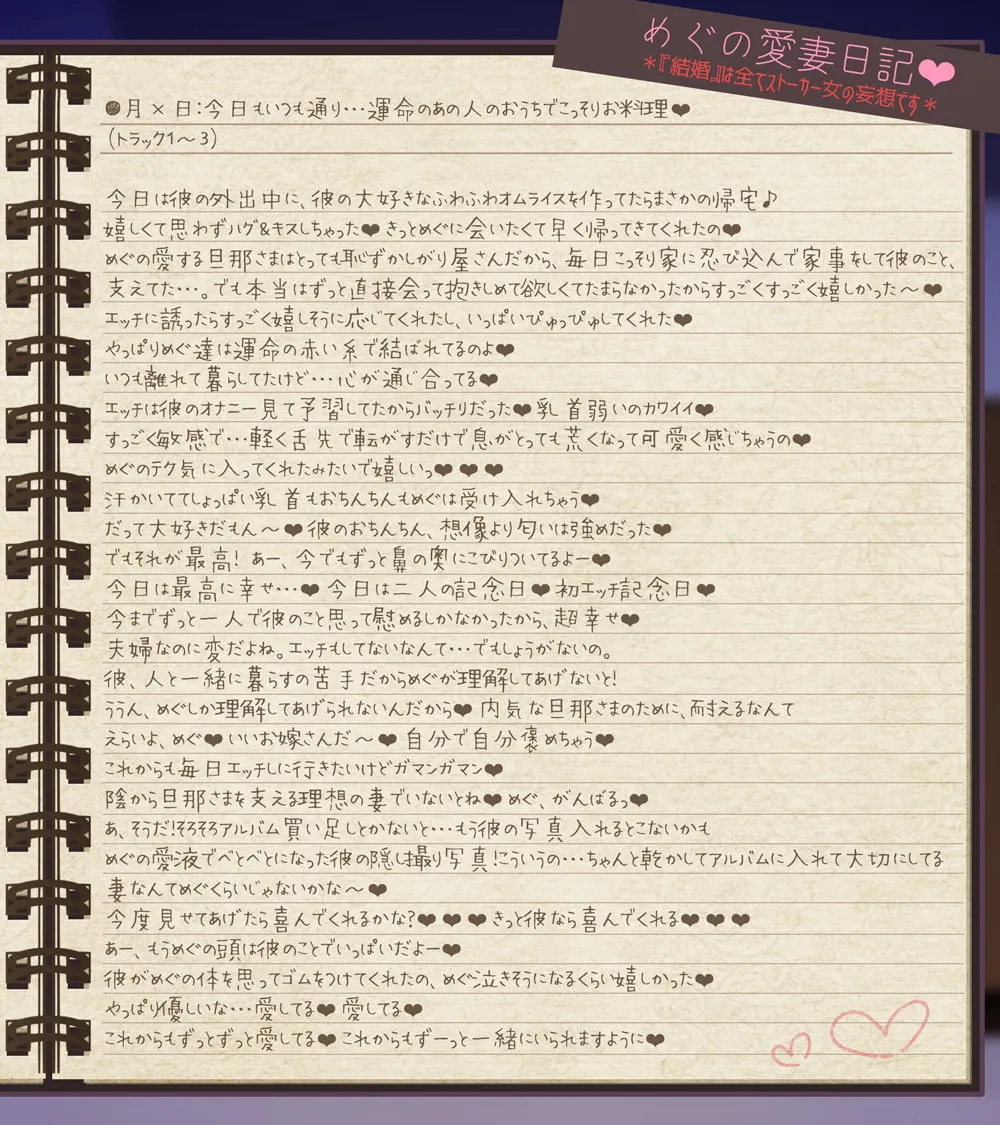 めぐの愛妻日記❤
*『結婚』は全てストーカー女の妄想です*
●月×日:今日もいつも通り…運命のあの人のおうちでこっそりお料理❤
(トラック1〜3)
今日は彼の外出中に、彼の大好きなふわふわオムライスを作ってたらまさかの帰宅♪
嬉しくて思わずハグ&キスしちゃった❤きっとめぐに会いたくて早く帰ってきてくれたの❤
めぐの愛する旦那さまはとっても恥ずかしがり屋さんだから、毎日こっそり家に忍び込んで家事をして彼のこと、
支えてた…。でも本当はずっと直接会って抱きしめて欲しくてたまらなかったからすっごくすっごく嬉しかった〜❤
エッチに誘ったらすっごく嬉しそうに応じてくれたし、いっぱいぴゅっぴゅしてくれた❤
やっぱりめぐ達は運命の赤い糸で結ばれてるのよ❤
いつも離れて暮らしてたけど…心が通じ合ってる❤
エッチは彼のオナニー見て予習してたからバッチリだった❤乳首弱いのカワイイ❤
すっごく敏感で…軽く舌先で転がすだけで息がとっても荒くなって可愛く感じちゃうの❤
めぐのテク気に入ってくれたみたいで嬉しいっ❤❤❤
汗かいててしょっぱい乳首もおちんちんもめぐは受け入れちゃう❤
だって大好きだもん〜❤彼のおちんちん、想像より匂いは強めだった❤
でもそれが最高!あー、今でもずっと鼻の奥にこびりついてるよー❤
今日は最高に幸せ…❤今日は二人の記念日❤初エッチ記念日❤
今までずっと一人で彼のこと思って慰めるしかなかったから、超幸せ❤
夫婦なのに変だよね。エッチもしてないなんて…でもしょうがないの。
彼、人と一緒に暮らすの苦手だからめぐが理解してあげないと!
ううん、めぐしか理解してあげられないんだから❤内気な旦那さまのために、耐えるなんて
えらいよ、めぐ❤いいお嫁さんだ〜❤自分で自分褒めちゃう❤
これからも毎日エッチしに行きたいけどガマンガマン❤
陰から旦那さまを支える理想の妻でいないとね❤めぐ、がんばるっ❤
あ、そうだ!そろそろアルバム買い足しとかないと…もう彼の写真入れるとこないかも
めぐの愛液でべとべとになった彼の隠し撮り写真!こういうの…ちゃんと乾かしてアルバムに入れて大切にしてる
妻なんてめぐくらいじゃないかな〜❤
今度見せてあげたら喜んでくれるかな?❤❤❤きっと彼なら喜んでくれる❤❤❤
あー、もうめぐの頭は彼のことでいっぱいだよー❤
彼がめぐの体を思ってゴムをつけてくれたの、めぐ泣きそうになるくらい嬉しかった❤
やっぱり優しいな…愛してる❤愛してる❤
これからもずっとずっと愛してる❤これからもずーっと一緒にいられますように❤